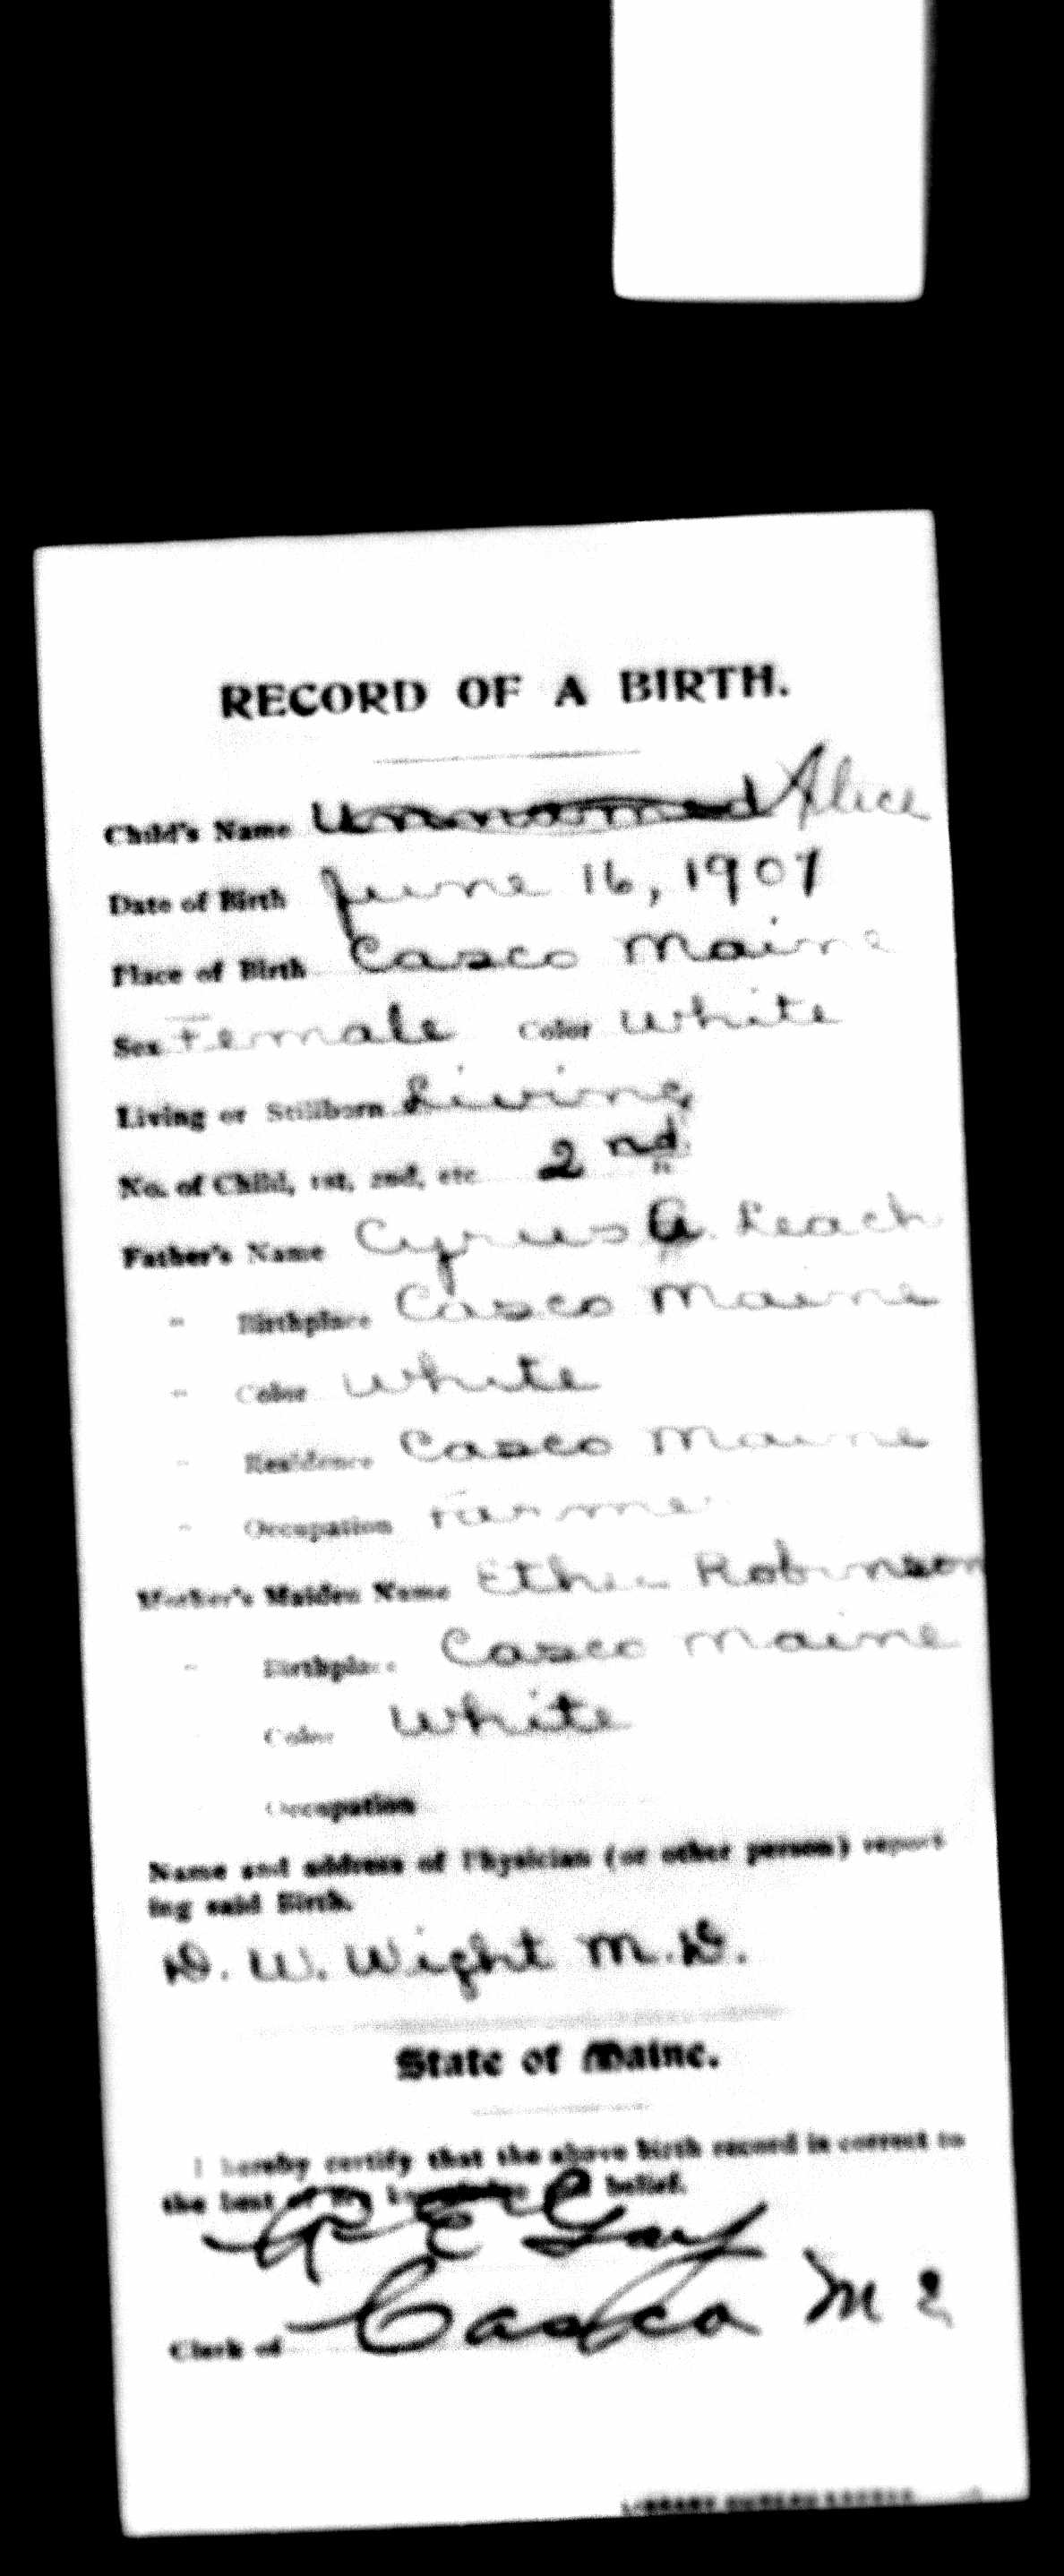 RECORD OF A BIRTH.
Child's Name Unnamed Alice
Date of Birth June 16, 1907
Place of Birth Casco Maine
Sex Female Color White
Living or Stillborn Living
No. of Child, 1st, 2nd, etc. 2nd
Father's Name Cyrus A. Leach
" Birthplace Casco Maine
" Color White
" Residence Casco Maine
" Occupation Farmer
Mother's Maiden Name Robinson
" Birthplace Casco Maine
Color White
Occupation
Name and address of Physician (or other person) report-
ing said Birth.
D. W. Wight M.D.
State of Maine.
I hereby certify that the above birth record is correct to
the best of my knowledge belief.
Gay
Clerk of Casco Me
LIBRARY BUREAU